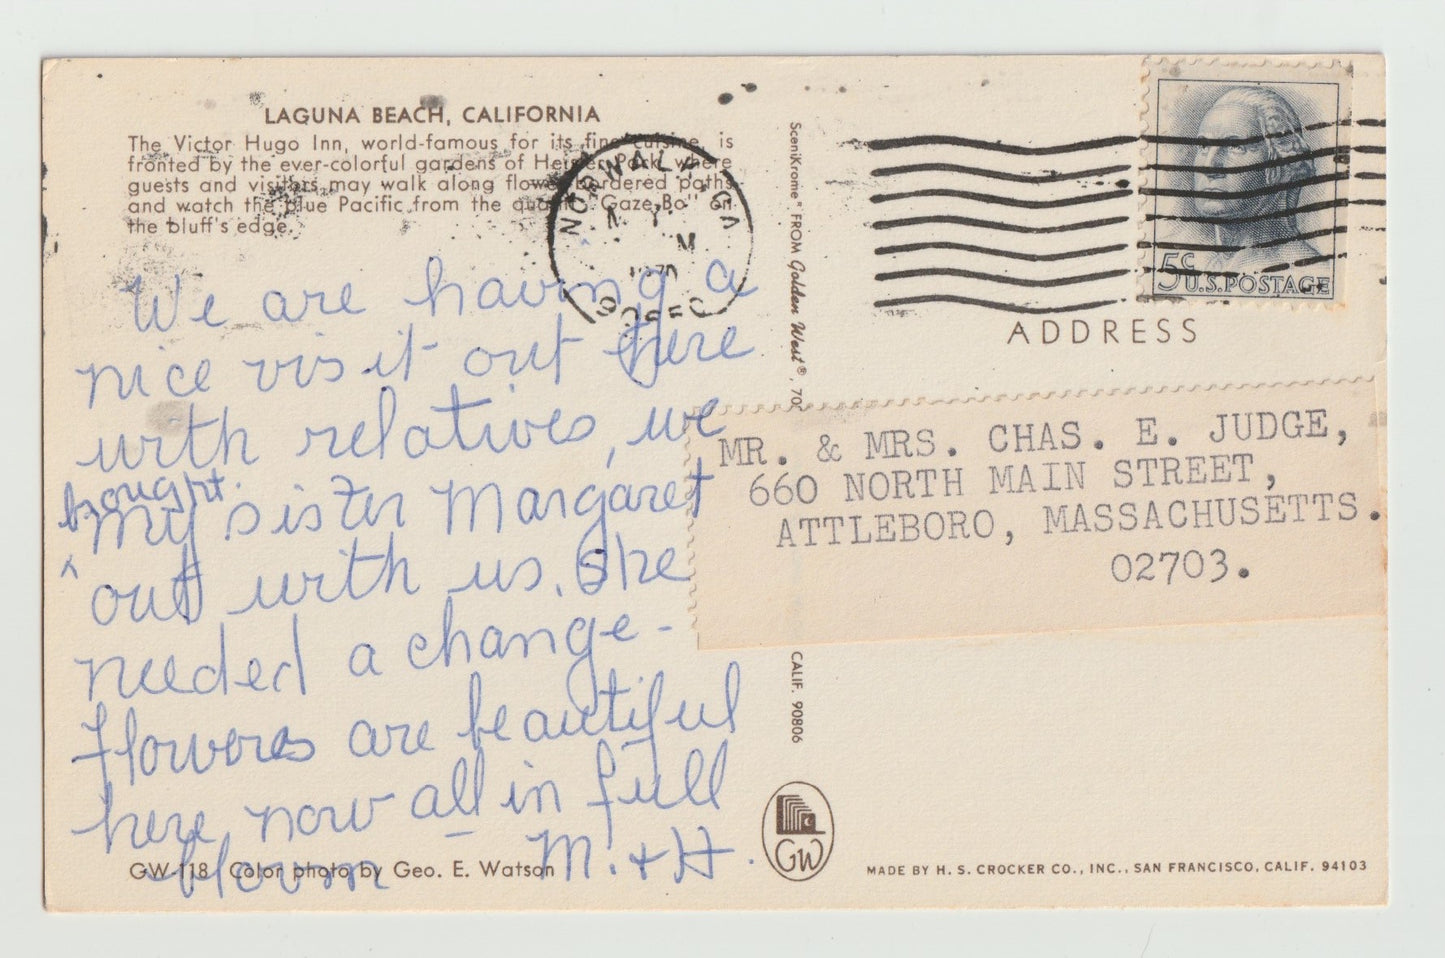 LAGUNA BEACH, CALIFORNIA
The Victor Hugo Inn, world-famous for its fine cuisine, is
fronted by the ever-colorful gardens of Heisler Park, where
guests and visitors may walk along flower bordered paths
and watch the blue Pacific from the quaint "Gaze-Bo" on
the bluff's edge.
We are having a
nice visit out here
with relatives, we
bought
^ my sister Margaret
out with us. She
needed a change -
Flowers are beautiful
here now all in full
bloom M. + H.
GW-118 Color photo by Geo. E. Watson
SceniKrome® FROM Golden West®, 70
CALIF. 90806
NORWALK, CA
M
5c
U.S. POSTAGE
ADDRESS
MR. & MRS. CHAS. E. JUDGE,
660 NORTH MAIN STREET,
ATTLEBORO, MASSACHUSETTS.
02703.
GW
MADE BY H. S. CROCKER CO., INC., SAN FRANCISCO, CALIF. 94103